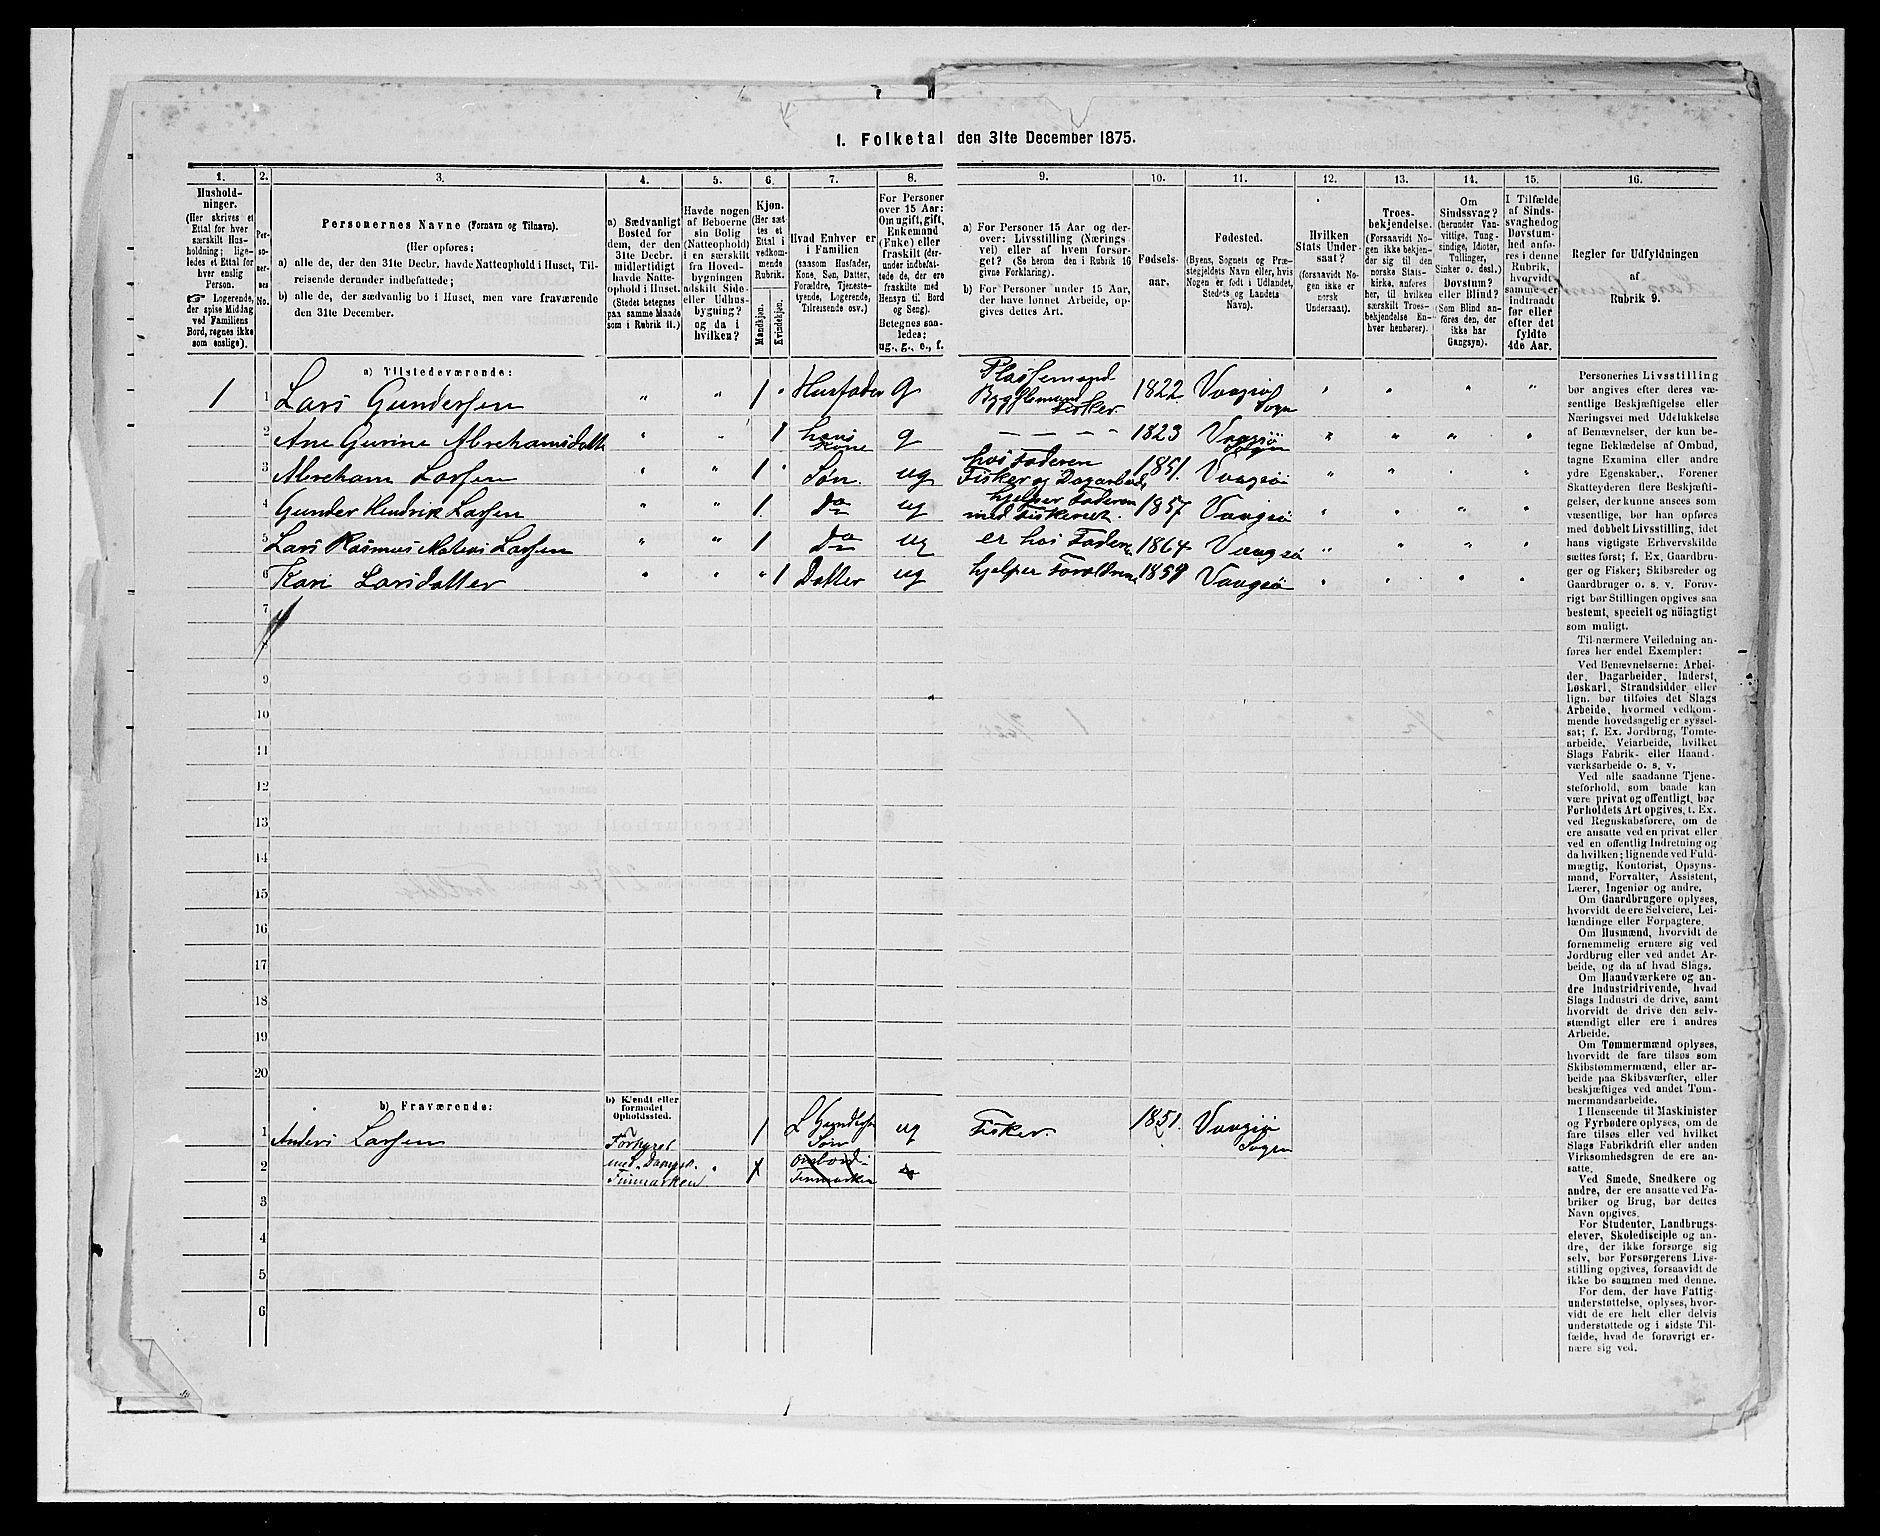 1. Folketal den 31te December 1875.
1.
Husholdninger.
(Her skrives et
Ettal for hver
særskilt Husholdning; ligeledes et Ettal for
hver enslig
Person.
☞ Logerende,
der spise Middag
ved Familiens
Bord, regnes ikke
som enslige).
2.
Personernes
No.
3.
Personernes Navne (Fornavn og Tilnavn).
(Her opføres:
a) alle de, der den 31te Decbr. havde Natteophold i Huset, Tilreisende derunder indbefattede;
b) alle de, der sædvanlig bo i Huset, men vare fraværende
den 31te December.
4.
a) Sædvanligt
Bosted for
dem, der den
31te Decbr.
midlertidigt
havde Natteophold i Huset.
(Stedet betegnes
paa samme Maade
som i Rubrik 11.)
5.
Havde nogen
af Beboerne
sin Bolig
(Natteophold)
i en særskilt
fra Hovedbygningen
adskilt Side- eller Udhusbygning?
og da i
hvilken?
6.
Kjøn.
(Her sættes et
Ettal i
vedkommende
Rubrik.
Mandkjøn.
Kvindekjøn.
7.
Hvad Enhver er
i Familien
(saasom Husfader,
Kone, Søn, Datter,
Forældre, Tjenestetyende, Logerende,
Tilreisende osv.)
8.
For Personer
over 15 Aar:
Om ugift, gift,
Enkemand
(Enke) eller
fraskilt (derunder indbefattede de, der ere
fraskilte med
Hensyn til Bord
og Seng).
Betegnes saaledes:
ug., g., e., f.
9.
a) For Personer 15 Aar og derover: Livsstilling (Næringsvei) eller af hvem forsørget? (Se herom den i Rubrik 16
givne Forklaring).
b) For Personer under 15 Aar,
der have lønnet Arbeide, opgives dettes Art.
10.
Fødselsaar.
11.
Fødested.
(Byens, Sognets og Præstegjeldets Navn eller, hvis
Nogen er født i Udlandet,
Stedets og Landets
Navn).
12.
Hvilken
Stats Undersaat?
(forsaavidt Nogen ikke er
norsk
Undersaat).
13.
Troesbekjendelse.
(Forsaavidt Nogen ikke bekjender sig til den
norske Statskirke, anføres
her, til hvilken
særskilt Troesbekjendelse Enhver henhører).
14.
Om
Sindssvag?
(herunder Vanvittige, Tungsindige, Idioter,
Tullinger,
Sinker o. desl.)
Døvstum?
eller Blind?
(Som Blind anføres den, der
ikke har
Gangsyn).
15.
I Tilfælde
af Sindssvaghed og
Døvstumhed anføres i denne
Rubrik,
hvorvidt
samme er
indtraadt
før eller
efter det
fyldte
4de Aar.
16.
Regler for Udfyldningen
af
Rubrik 9.
a) Tilstedeværende:
1 1 Lars Gundersen " " 1 " Husfader g Pladsemand Bygselmand Fisker 1822 Vaagsø Sogn " " " "
2 Ane Gurine Abrehamsdatter " " 1 hans Kone g - - - - 1823 Vaagsø Sogn " " " "
3 Abreham Larsen " " 1 " Søn. ug hos Faderen Fisker og Dagarbeid 1851. Vaagsø " " " "
4 Gunder Hendrik Larsen " " 1 do ug hjelper Faderen med Fiskeriet. 1857 Vaagsø " " " "
5 Lars Rasmus Larsen " " 1 do ug er hos Faderen 1864 Vaagsø " " " "
6 Kari Larsdatter " " " 1 Datter ug hjelper Foreldrene Vaagsø " " " "
7
9
10
11
12
13
14
15
16
17
18
19
20
b) Fraværende:
b) Kjendt eller
formodet
Opholdssted.
1 Anders Larsen Forhyret 1 L Gundersen Søn ug Fisker. 1851. Vaagsø Sogn
2 med Dampsk. " X ombord i
Finmarken Finmarken
3
4
5
6
Personernes Livsstilling
bør angives efter deres væsentlige Beskjæftigelse eller
Næringsvei med Udelukkelse
af Benævnelser, der kun betegne Beklædelse af Ombud,
tagne Examina eller andre
ydre Egenskaber. Forener
Skatteyderen flere Beskjæftigelser, der kunne ansees som
væsentlige, bør han opføres
med dobbelt Livsstilling, idet
hans vigtigste Erhvervskilde
sættes først; f. Ex. Gaardbruger og Fisker; Skibsreder og
Gaardbruger o. s. v. Forøvrigt bør Stillingen opgives saa
bestemt, specielt og nöiagtigt
som muligt.
Til nærmere Veiledning anføres her endel Exempler:
Ved Benævnelserne: Arbeider, Dagarbeider, Inderst,
Løskarl, Strandsidder eller
lign. bør tilføies det Slags
Arbeide, hvormed vedkommende hovedsagelig er sysselsat; f. Ex. Jordbrug, Tomtearbeide, Veiarbeide, hvilket
Slags Fabrik- eller Haandværksarbeide o. s. v.
Ved alle saadanne Tjenesteforhold, som baade kan
være privat og offentligt, bør
Forholdets Art opgives, t. Ex.
ved Regnskabsførere, om de
ere ansatte ved en privat eller
ved en offentlig Indretning og
da hvilken; lignende ved Fuldmægtig, Kontorist, Opsynsmand, Forvalter, Assistent,
Lærer, Ingeniør og andre.
Om Gaardbrugere oplyses,
hvorvidt de ere Selveiere, Leilændinge eller Forpagtere.
Om Husmænd, hvorvidt de
fornemmelig ernære sig ved
Jordbrug eller ved andet Arbeide, og da af hvad Slags.
Om Haandværkere og andre Industridrivende, hvad
Slags Industri de drive, samt
hvorvidt de drive den selvstændigt eller ere i andres
Arbeide.
Om Tømmermænd oplyses,
hvorvidt de fare tilsøs som
Skibstømmermænd, eller arbeide paa Skibsværfter, eller
beskjæftiges ved andet Tømmermandsarbeide.
I Henseende til Maskinister
og Fyrbødere oplyses, om de
fare tilsøs eller ved hvilket
Slags Fabrikdrift eller anden
Virksomhedsgren de ere ansatte.
Ved Smede, Snedkere og
andre, der ere ansatte ved Fabriker og Brug, bør dettes
Navn opgives.
For Studenter, Landbrugselever, Skoledisciple og andre, der ikke forsørge sig
selv, bør Forsørgerens Livsstilling opgives, forsaavidt de
ikke bo sammen med denne.
For dem, der have Fattigunderstøttelse, oplyses, hvorvidt de ere helt eller delvis
understøttede og i sidste Tilfælde, hvad de forøvrigt ernære sig ved.